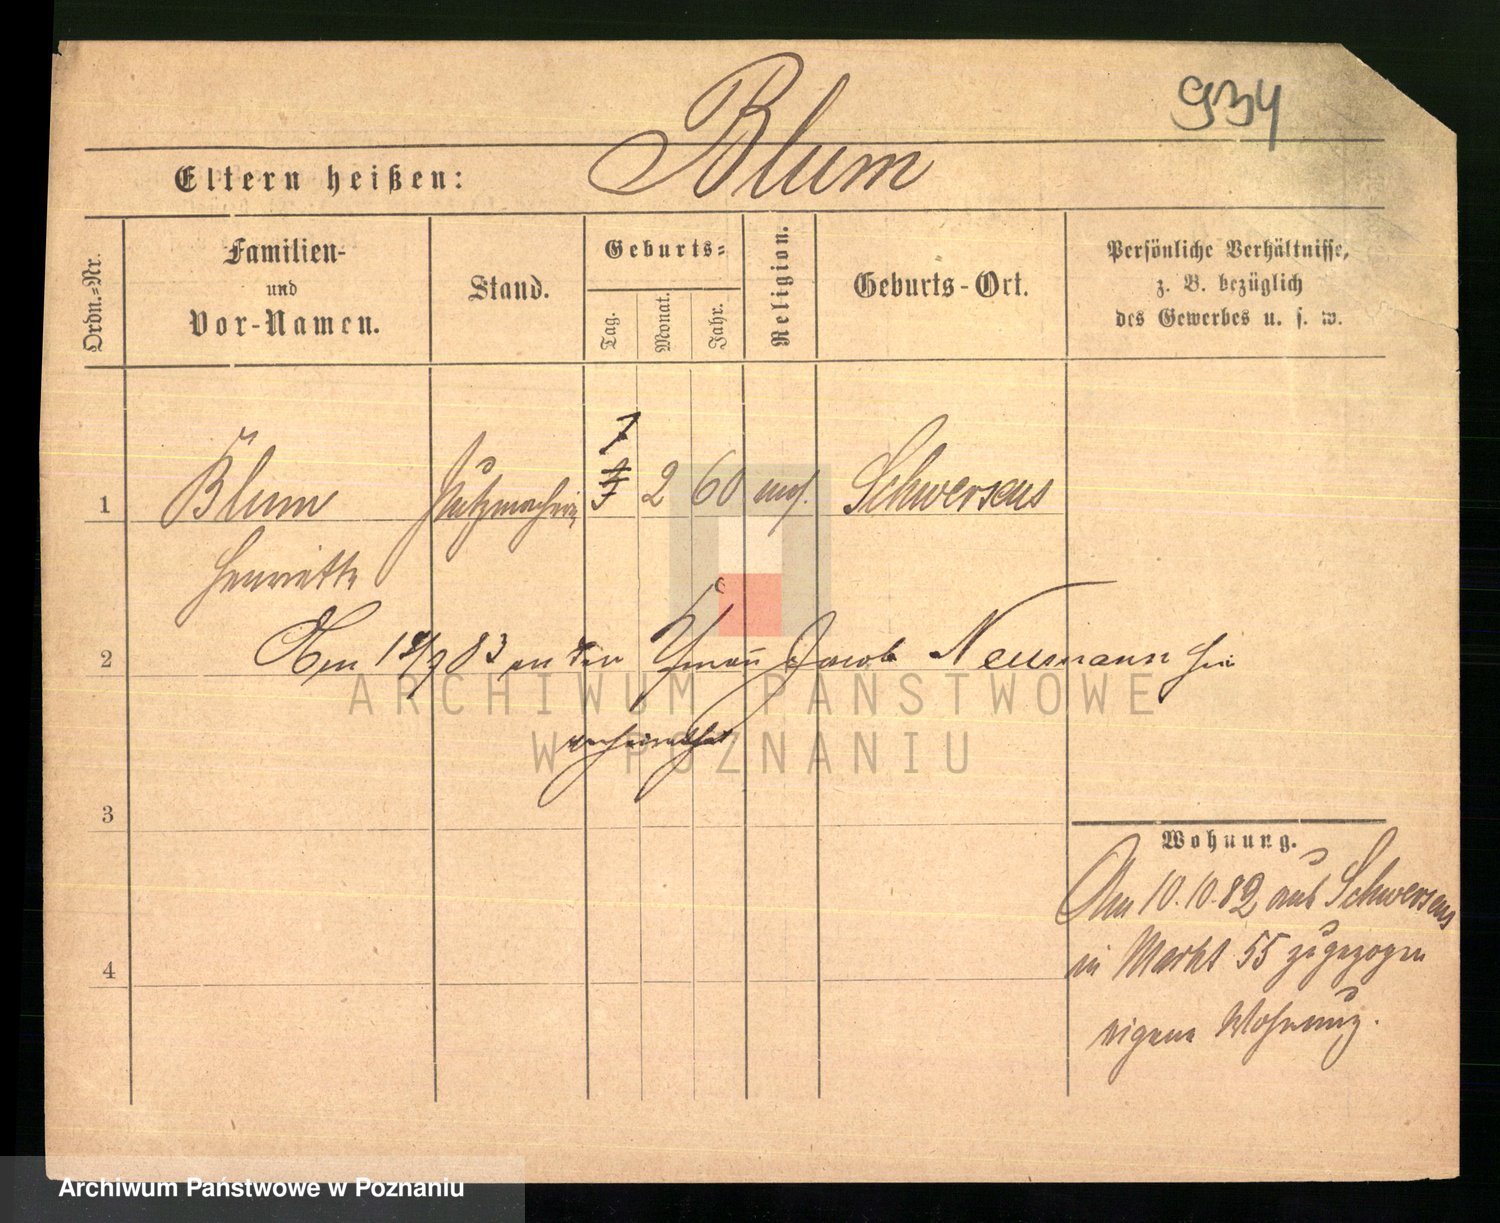 934
Blum
Eltern heißen:
Ordn.=Nr.
Familien-
und
Vor-Namen.
Stand.
Geburts=
Tag.
Monat.
Jahr.
Religion.
Geburts-Ort.
Persönliche Verhältnisse,
z. B. bezüglich
des Gewerbes u. s. w.
7
1 Blum Putzmacherin 2 60 mos. Schwersens
Henriette
2 Am 83 an den Jacob Neumann hie
verheirathet
ARCHIWUM PAŃSTWOWE
W POZNANIU
3
Wohnung.
Am 10.10.82 aus Schwersens
in Markt 55 zugezogen
4
eigene Wohnung.
Archiwum Państwowe w Poznaniu